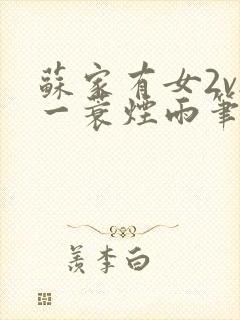 蘇家有女2v
一蓑煙雨筆
羨李白